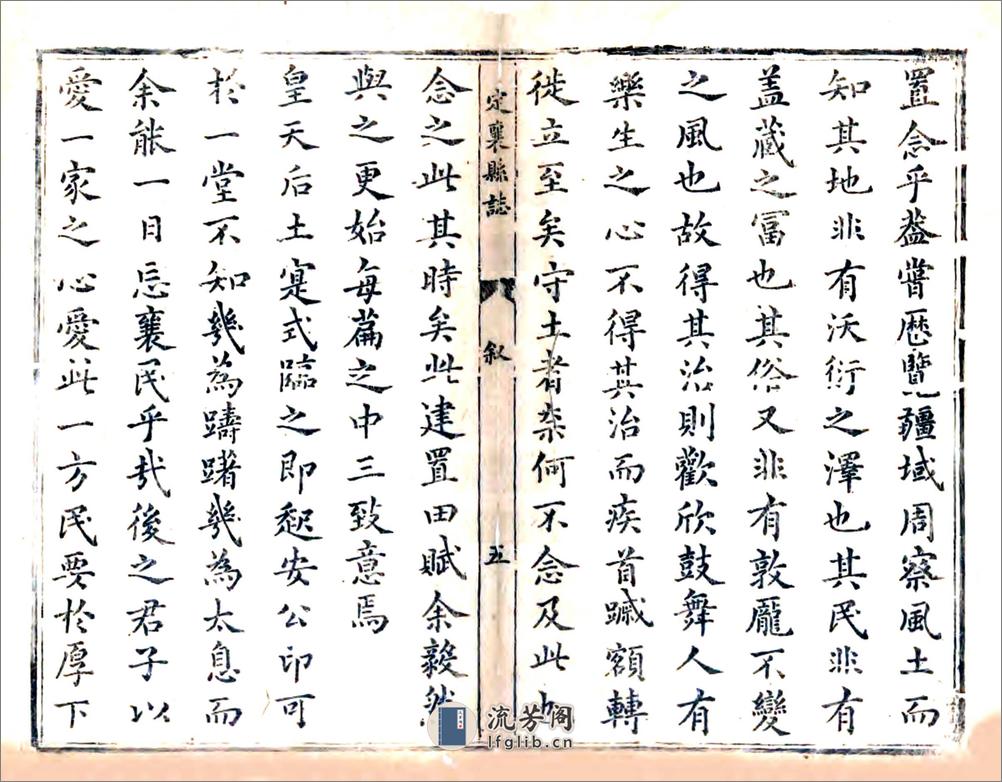 置念乎蓋嘗歷覽疆域周察風土而
知其地非有沃衍之澤也其民非有
盖藏之富也其俗又非有敦龐不變
之風也故得其治則歡欣鼓舞人有
樂生之心不得其治而疾首蹙額轉
徙立至矣守土者柰何不念及此也
定襄縣誌
叙
五
念之此其時矣此建置田賦余毅然
與之更始每篇之中三致意焉
皇天后土寔式臨之即起安公印可
於一堂不知幾為躊躇幾為太息而
余能一日忘襄民乎哉後之君子以
愛一家之心愛此一方民要於厚下
流芳阁
lfglib.cn